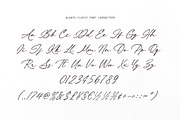 ALWAYS CLASSY FONT CHARACTERS
Aa Bb Cc Dd Ee Ff Gg Hh
Ii Jj Kk Ll Mm Nn Oo Pp Qq
Rr Ss Tt Uu Vv Ww Xx Yy Zz
0123456789